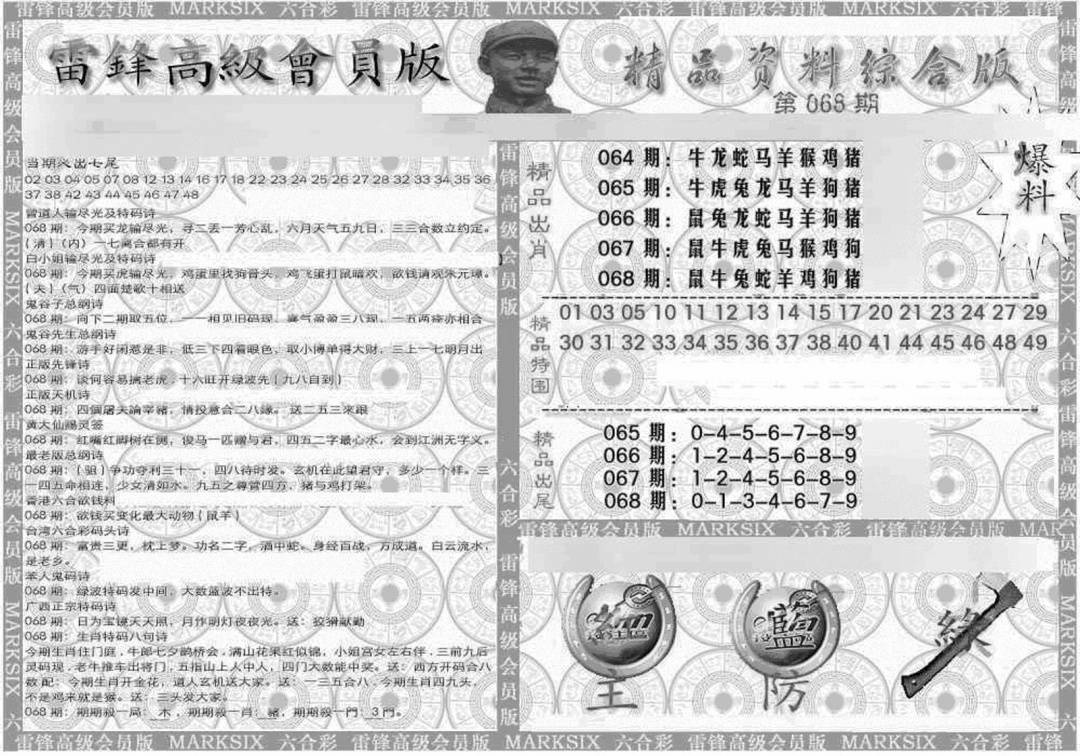 雷锋高级会员版 MARKSIX 六合彩 雷锋高级会员版 MARKSIX 六合彩 雷锋高级会员版 MARKSIX 六合彩 雷锋
雷鋒高級會員版
精品资料综合版
第 068 期
当期必出七尾
02 03 04 05 07 08 12 13 14 16 17 18 22 23 24 25 26 27 28 32 33 34 35 36
37 38 42 43 44 45 46 47 48
曾道人输尽光及特码诗
068 期：今期买龙输尽光，寻二丢一芳心乱，六月天气五九日，三三合数立约定。
(清)(内) 一七离合都有开
白小姐输尽光及特码诗
068 期：今期买虎输尽光，鸡蛋里找狗骨头，鸡飞蛋打鼠暗欢，欲钱请观朱元璋。
(夫)(气) 四面楚歌十相送
鬼谷子总纲诗
068 期：向下二期取五位，一一相见旧码现，喜气盈盈三八现，一五两疼亦相合
鬼谷先生总纲诗
068 期：游手好闲惹是非，低三下四看眼色，取小博单得大财，三上一七明月出
正版先锋诗
068 期：谈何容易擒老虎．十六旺开绿波先(九八自到)
正版天机诗
068 期：四個屠夫論宰豬，情投意合二八緣。 送二五三来跟
黄大仙赐灵签
068 期：红嘴红脚树在侧，俊马一匹赠与君，四五二字最心水，会到江洲无字义。
最老版总纲诗
068 期：(驵)争功夺利三十一，四八待时发。玄机在此望君守，多少一个样。三
一四五命相连，少女清如水。九五之尊管四方，猪与鸡打架。
香港六合欲钱料
068 期：欲钱买变化最大动物(鼠羊)
台湾六合彩码头诗
068 期：富贵三更，枕上梦。功名二字，酒中蛇。身经百战，方成道。白云流水，
是老乡。
笨人鬼码诗
068 期：绿波特码发中间，大数蓝波不出特。
广西正宗特码诗
068 期：日为宝镜天天照，月作明灯夜夜光。送：狡猾献勤
068 期：生肖特码八句诗
今期生肖往门庭．牛郎七夕鹊桥会．满山花果红似锦，小姐宫女左右伴．三前九后
灵码现．老牛推车出将门，五指山上人中人，四门大数能中奖。送：西方开码合八
数 配：今期生肖开金花，道人玄机送大家。送：一三五合八．今期生肖四九头，
不是鸡来就是猴。送：三头发大家。
068 期：期期殺一局：木，期期殺一肖：豬，期期殺一門：3 門。
精品出肖
064 期：牛龙蛇马羊猴鸡猪
065 期：牛虎兔龙马羊狗猪
066 期：鼠兔龙蛇马羊狗猪
067 期：鼠牛虎兔马猴鸡狗
068 期：鼠牛兔蛇羊鸡狗猪
爆料
精品特围
01 03 05 10 11 12 13 14 15 17 20 21 23 24 27 29
30 31 32 33 34 35 36 37 38 40 41 44 45 46 48 49
精品出尾
065 期：0-4-5-6-7-8-9
066 期：1-2-4-5-6-8-9
067 期：1-2-4-5-6-8-9
068 期：0-1-3-4-6-7-9
雷锋高级会员版 MARKSIX 六合彩 雷锋高级会员版 MAR
藍
綠
主
防
雷锋高级会员版 MARKSIX 六合彩 雷锋高级会员版 MARKSIX 六合彩 雷锋高级会员版 MARKSIX 六合彩 雷锋